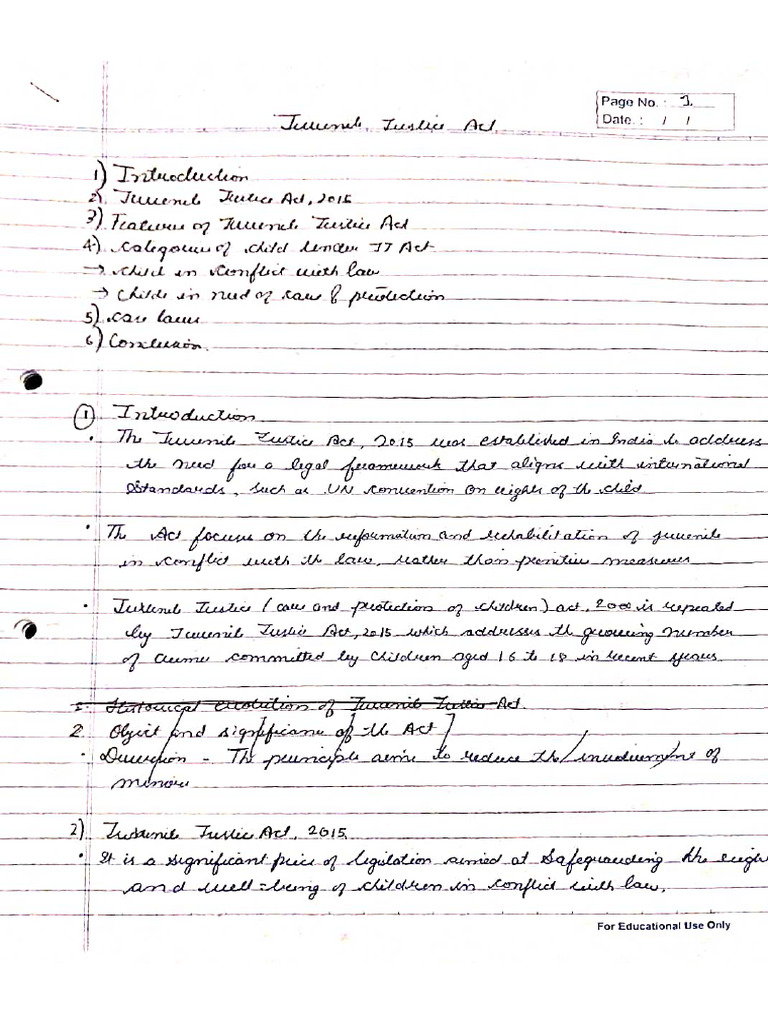 Page No. : 1
Date. : / /
Juvenile Justice Act
1) Introduction
2) Juvenile Justice Act, 2015
3) Features of Juvenile Justice Act
4) categories of child Under JJ Act
→ child in conflict with law
→ childe in need of care & protection
5) case laws
6) Conclusion.
1 Introduction
• The Juvenile Justice Act, 2015 was established in India to address
the need for a legal framework that aligns with international
Standards, such as UN convention on rights of the child
• The Act focuses on the reformation and rehabilitation of juvenile
in conflict with the law, rather than punitive measures
• Juvenile Justice (care and protection of children) act, 2000 is repealed
by Juvenile Justice Act, 2015 which addresses the growing number
of crimes committed by children aged 16 to 18 in recent years.
2. Historical evolution of Juvenile Justice Act.
2. Object and significance of the Act
• Diversion - The principle aims to reduce the involvement of
minors
2) Juvenile Justice Act, 2015
• It is a significant piece of legislation aimed at Safeguarding the righ
and well-being of children in conflict with law.
For Educational Use Only